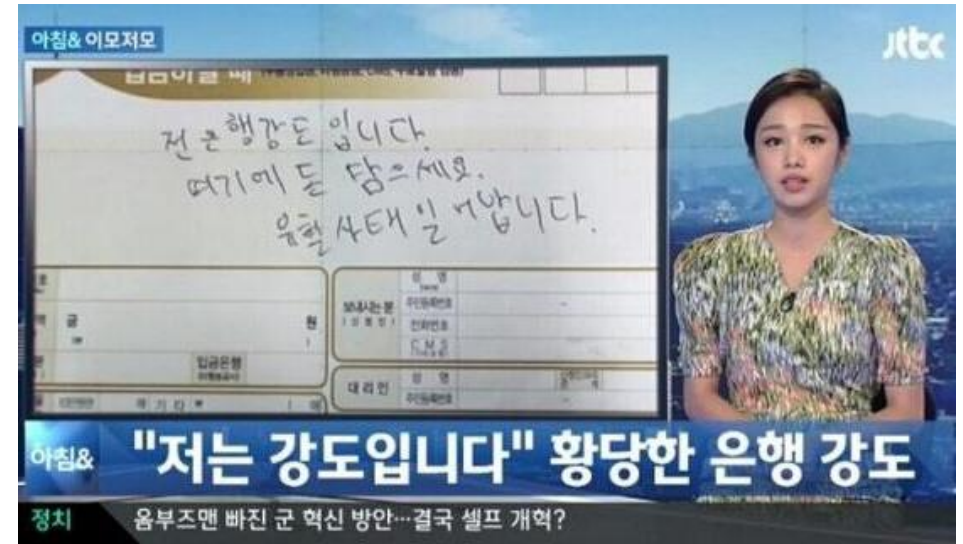 아침& 이모저모
jtbc
입금하실 때
전 은행강도입니다.
여기에 돈 담으세요.
유혈사태 일어납니다.
금
원
보내시는분
성 명
주민등록번호
전화번호
C M S
입금은행
대리인
성 명
주민등록번호
기 타
아침& "저는 강도입니다" 황당한 은행 강도
정치 옴부즈맨 빠진 군 혁신 방안…결국 셀프 개혁?